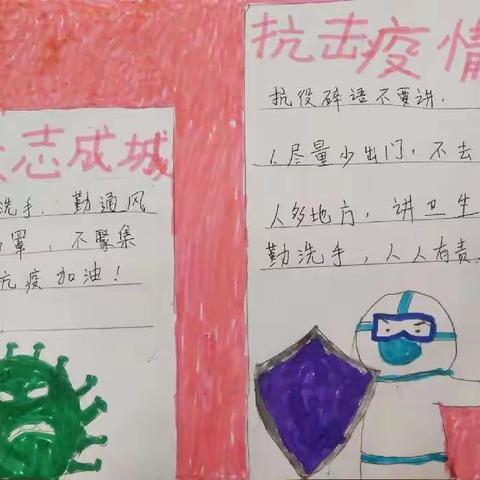 志成城
洗手、勤通风
罩，不聚集
抗疫加油！
抗击疫情
抗役碎语不要讲.
人尽量少出门，不去
人多地方，讲卫生
勤洗手，人人有责.